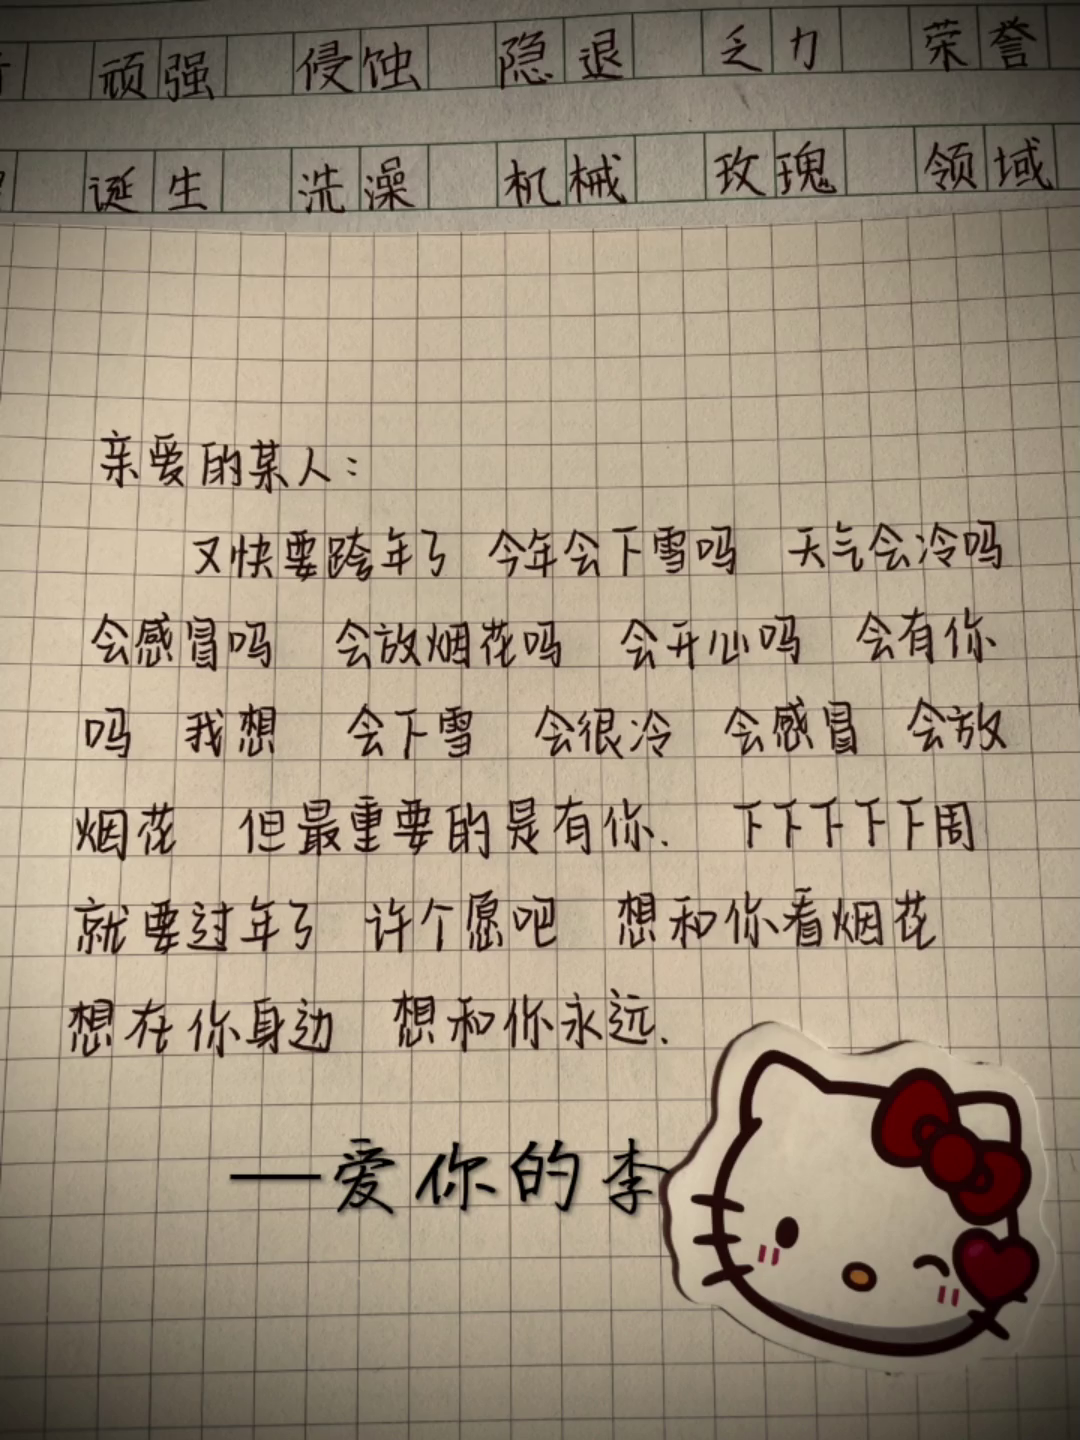 顽强 侵蚀 隐退 乏力 荣誉
诞生 洗澡 机械 玫瑰 领域
亲爱的某人：
又快要跨年了 今年会下雪吗 天气会冷吗
会感冒吗 会放烟花吗 会开心吗 会有你
吗 我想 会下雪 会很冷 会感冒 会放
烟花 但最重要的是有你. 下下下下下周
就要过年了 许个愿吧 想和你看烟花
想在你身边 想和你永远.
—爱你的李